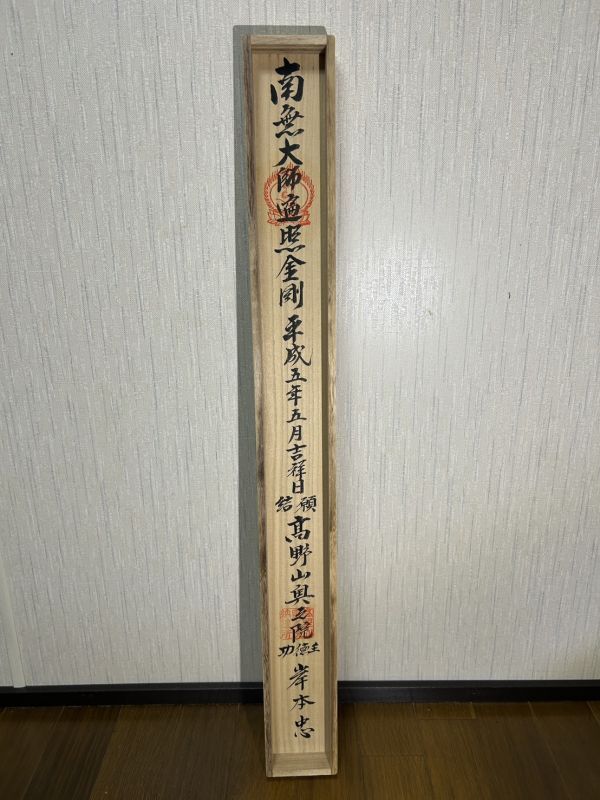 南無大師遍照金剛 平成五年五月吉祥日 結願 高野山奥之院 功徳主 岸本忠